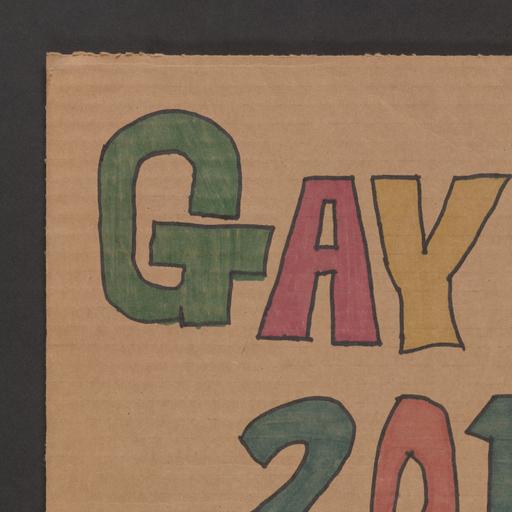 GAY
201